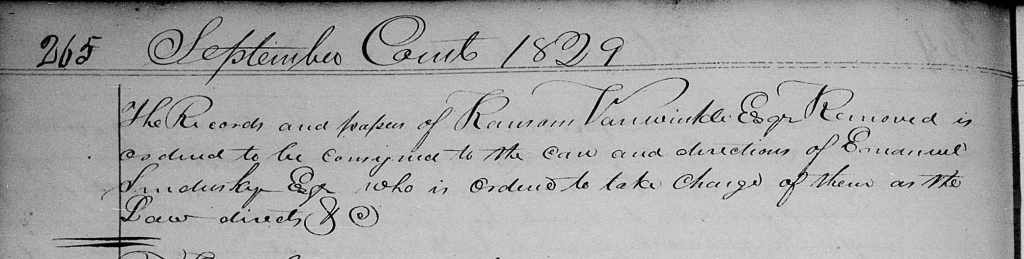 265 September Court 1829
The Records and papers of Ransom Vanwinkle Esqr Removed is
ordered to be consigned to the care and directions of Emanuel
Sandusky Esqr who is ordered to take charge of them as the
Law directs & C